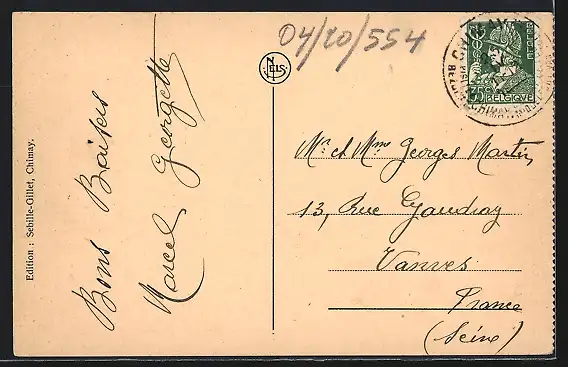 04/20/554
Bons Baisers
Marcel Georgette
Edition : Sebille-Gillet, Chimay.
NELS
CHIMAY
35c
BELGIQUE
Mr et Mme Georges Martin,
13, Rue Gaudray
Vanves
France
(Seine)